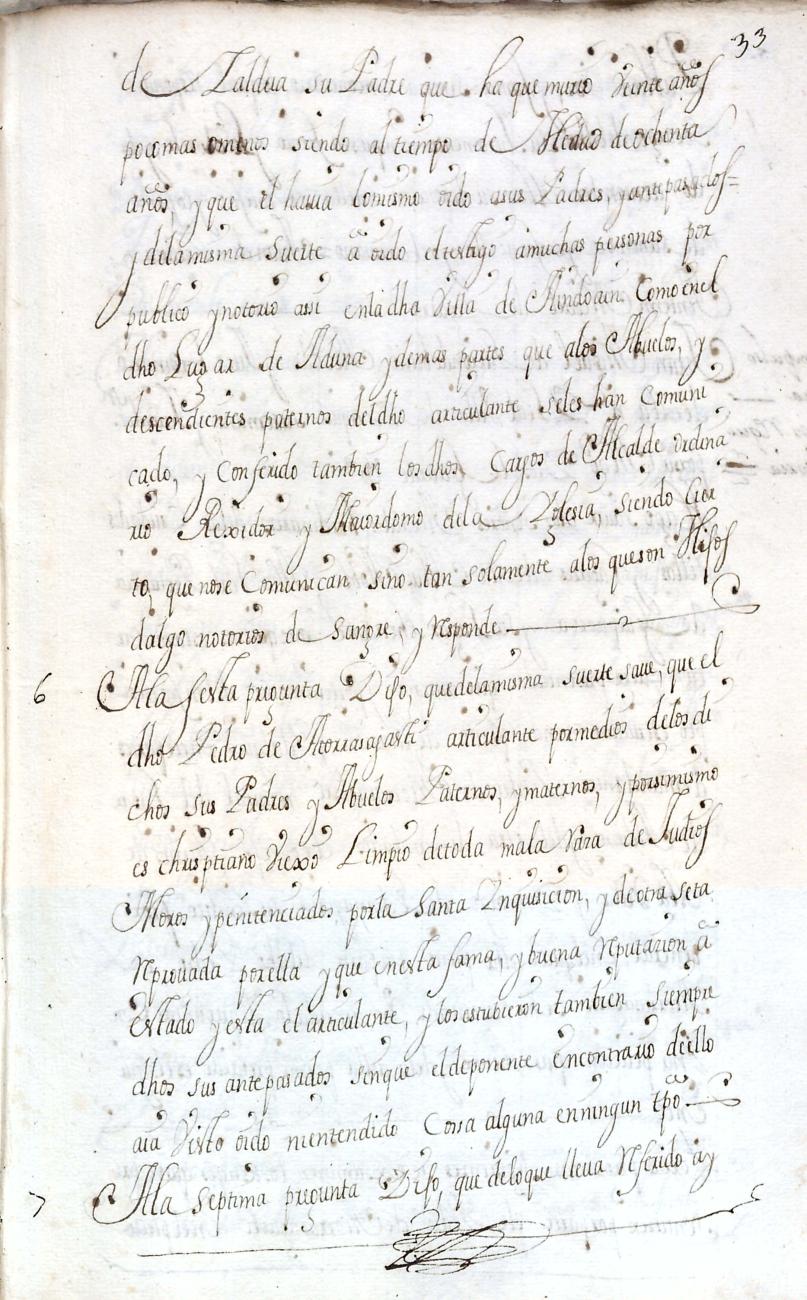 33
de Zaldua su Padre que ha que murio Veinte años
poco mas omenos siendo al tiempo de Hedad de ochenta
años, y que el hauia lomismo oido asus Padres, y antepasados=
y delamisma Suerte â oido eltestigo amuchas personas por
publico ynotorio assi enla dha Villa de Andoain Como enel
dho Lugar de Aduna ydemas partes que alos Abuelos, y
descendientes paternos deldho articulante seles han Comuni
cado, y Conferido tambien los dhos Cargos de Alcalde ordina
rio Rexidor y Maiordomo dela Iglesia, siendo Cier
to, que nose Comunican sino tan solamente alos queson Hijos
dalgo notorios de Sangre, y Responde
6 Ala sexta pregunta Dijo, que delamisma suerte saue, que el
dho Pedro de Atorrasagasti articulante pormedios delos di
chos sus Padres y Abuelos Paternos, ymaternos, y porsimismo
es chrisptiano Viexo Limpio detoda mala Raza de Judios
Moros ypenitenciados porla Santa Inquisicion, y deotra seta
Reprouada porella yque enesta fama, ybuena Reputazion â
Estado yesta el articulante, y losestubieron tambien siempre
dhos sus antepasados sinque eldeponente encontrario deello
aia Visto oido nientendido Cossa alguna enningun tpo
7 Ala septima pregunta Dijo, que deloque lleua Referido ay